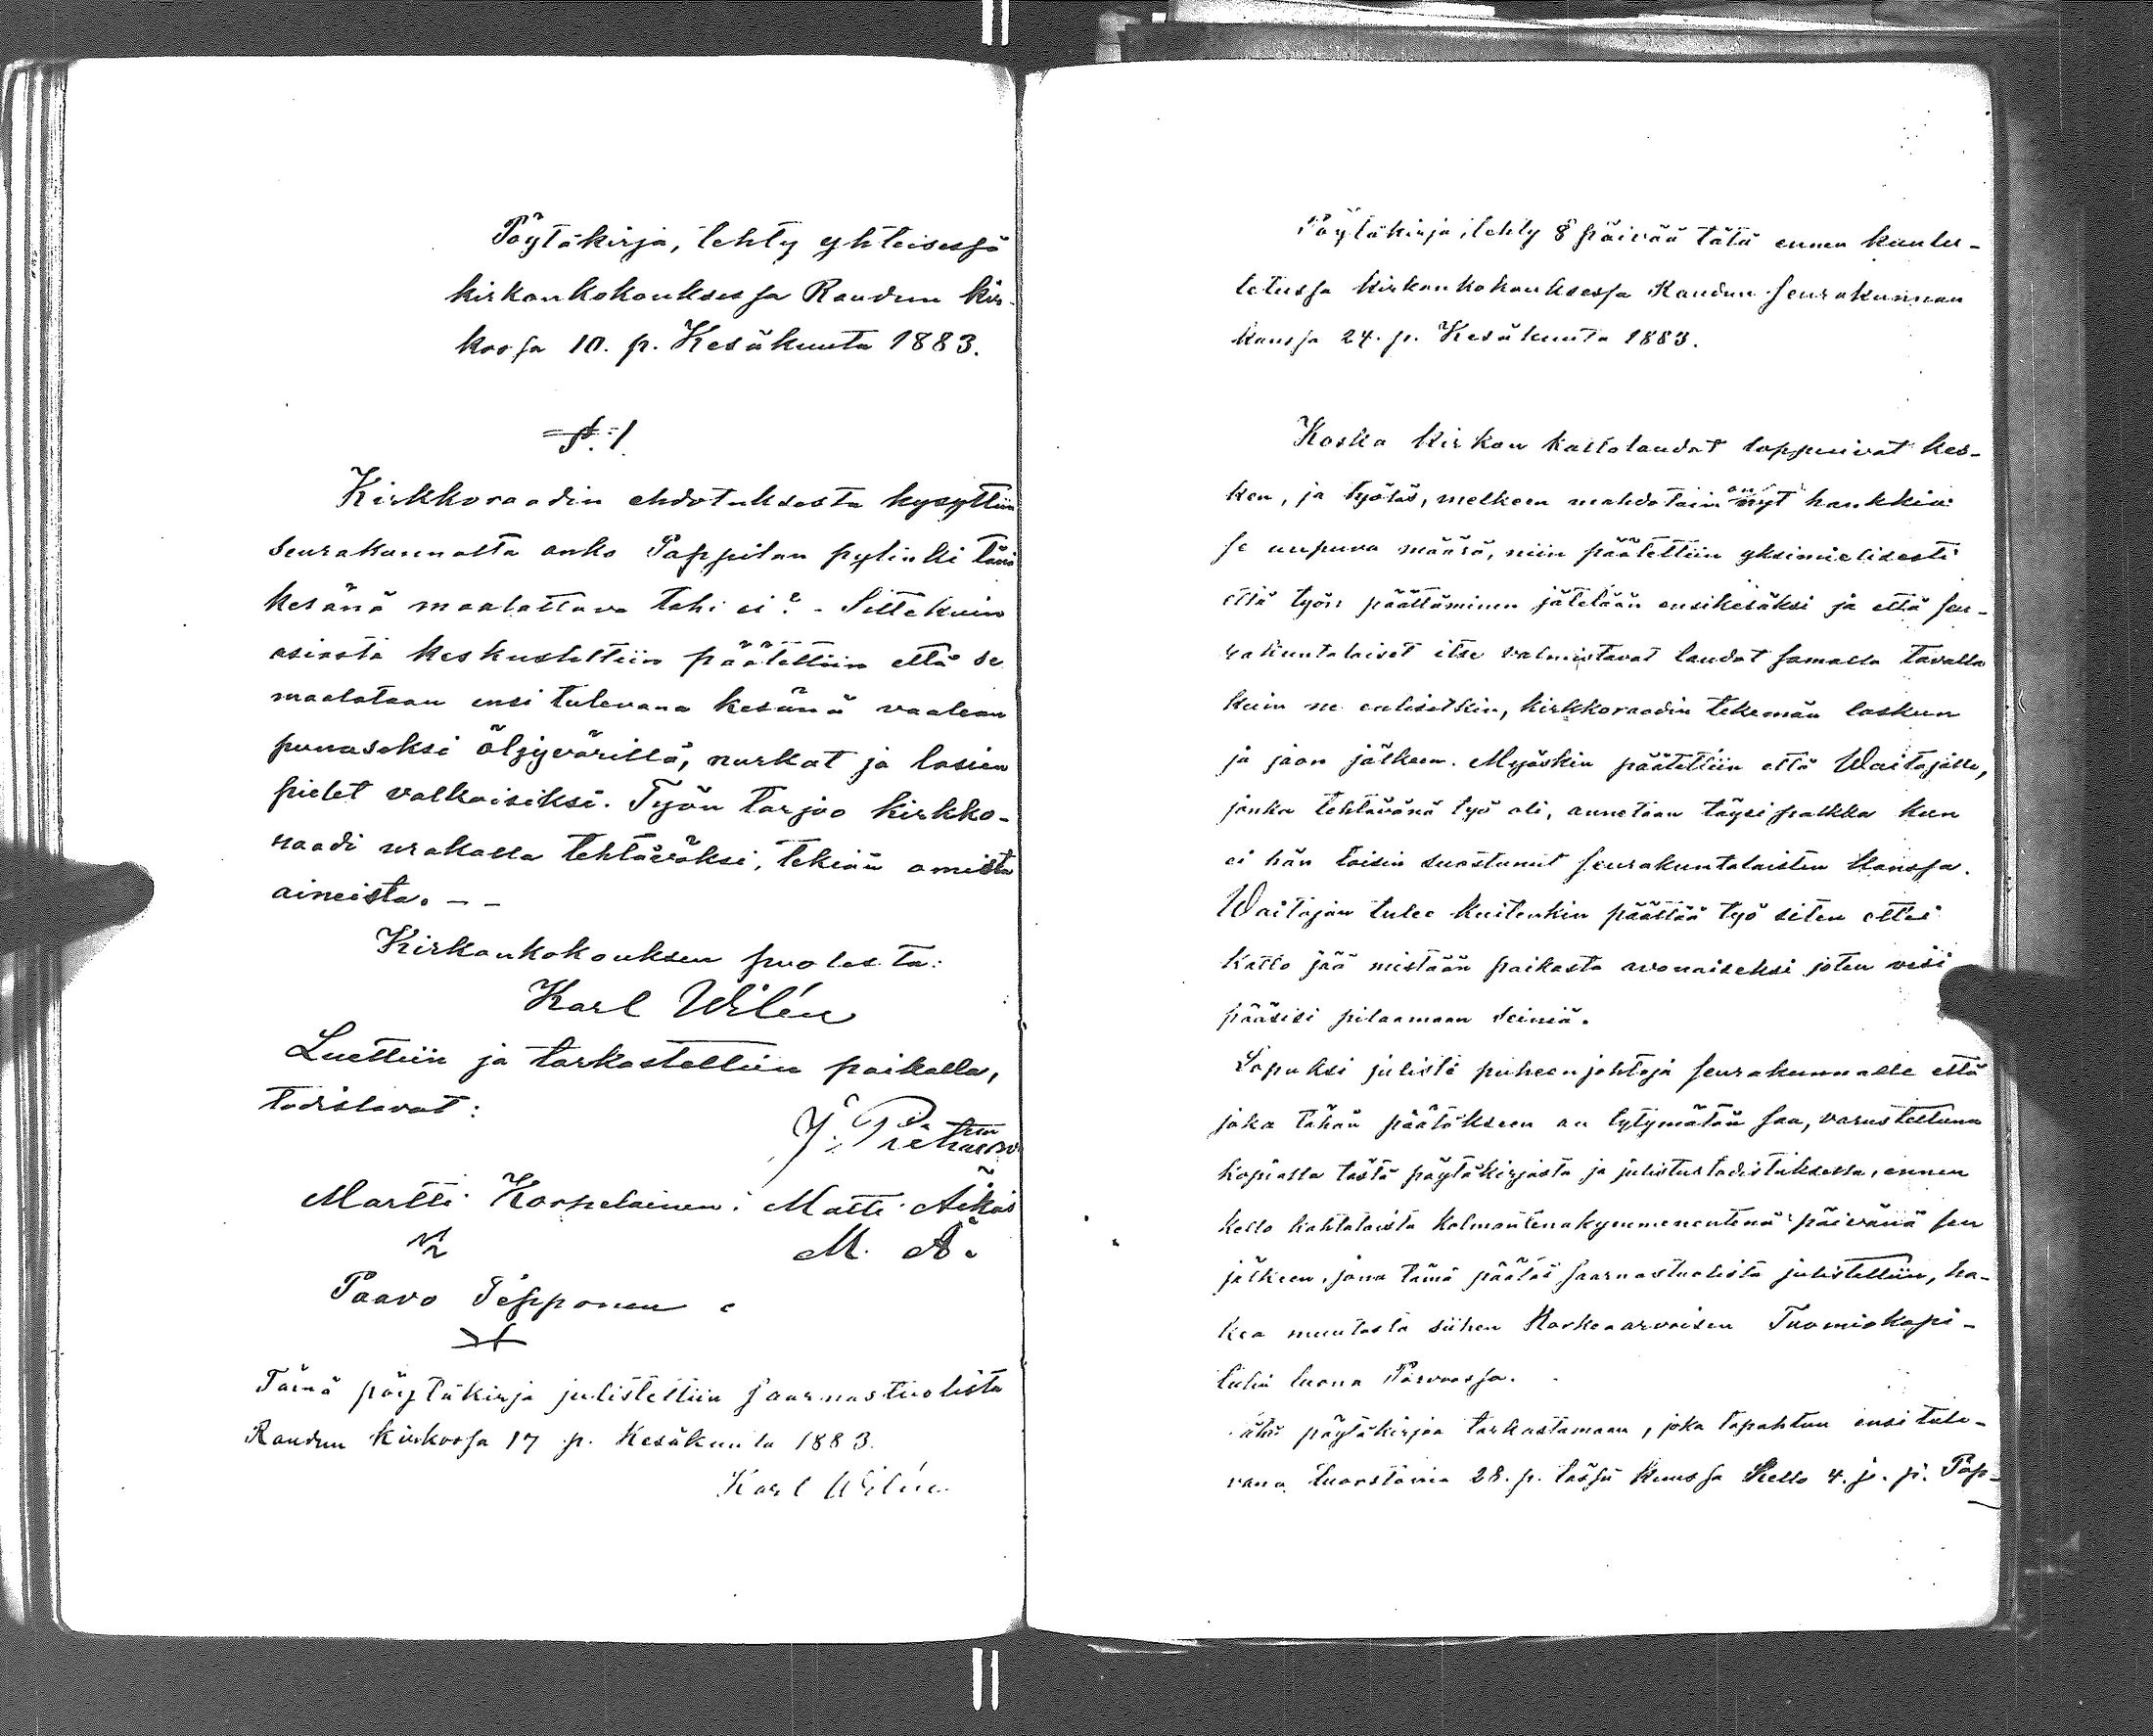 Pöytäkirja, tehty yhteisessä
kirkonkokouksessa Raudun kir-
kossa 10. p. Kesäkuuta 1883.
§. 1.
Kirkkoraadin ehdotuksesta kysyttiin
seurakunnalta onko Pappilan pytinki tänä
kesänä maalattava tahi ei? - Sittekuin
asiasta keskusteltiin päätettiin että se
maalataan ensi tulevana kesänä vaalean
punaseksi öljyvärillä, nurkat ja lasien
pielet valkoisiksi. Työn tarjoo kirkko-
raadi urakalla tehtäväksi, tekiän omista
aineista. - -
Kirkonkokouksen puolesta:
Karl Wilén
Luettiin ja tarkastettiin paikalla,
todistavat:
J. Pietiäinen
Martti Korpelainen. Matti Äikäs
M. Ä.
Paavo Pepponen
Tämä pöytäkirja julistettiin saarnastuolista
Raudun kirkossa 17 p. Kesäkuuta 1883.
Karl Wilén.
Pöytäkirja, tehty 8 päivää tätä ennen kuulu-
tetussa kirkonkokouksessa Raudun seurakunnan
kanssa 24. p. Kesäkuuta 1883.
Koska kirkon kattolaudat loppuivat kes-
ken, ja työläs, melkeen mahdotoin on nyt hankkia
se uupuva määrä, niin päätettiin yksimielisesti
että työn päättäminen jätetään ensikesäksi ja että seu-
rakuntalaiset itse valmistavat laudat samalla tavalla
kuin ne entisetkin, kirkkoraadin tekemän laskun
ja jaon jälkeen. Myöskin päätettiin että Waitajalle,
jonka tehtävänä työ oli, annetaan täysi palkka kun
ei hän toisin suostunut seurakuntalaisten kanssa.
Waitajan tulee kuitenkin päättää työ siten ettei
katto jää mistään paikasta avonaiseksi joten vesi
pääsisi pilaamaan seiniä.
Lopuksi julisti puheenjohtaja seurakunnalle että
joka tähän päätökseen on tytymätön saa, varustettuna
kopialla tästä pöytäkirjasta ja julistustodistuksella, ennen
kello kahtatoista kolmantenakymmenentenä päivänä sen
jälkeen, jona tämä päätös saarnastuolista julistettiin, ha-
kea muutosta siihen Korkeaarvoisen Tuomiokapi-
tulin luona Porvoossa.
pöytäkirjaa tarkastamaan, joka tapahtuu ensi tule-
vana tuorstaina 28. p. tässä kuussa Kello 4. j. p. Pap-